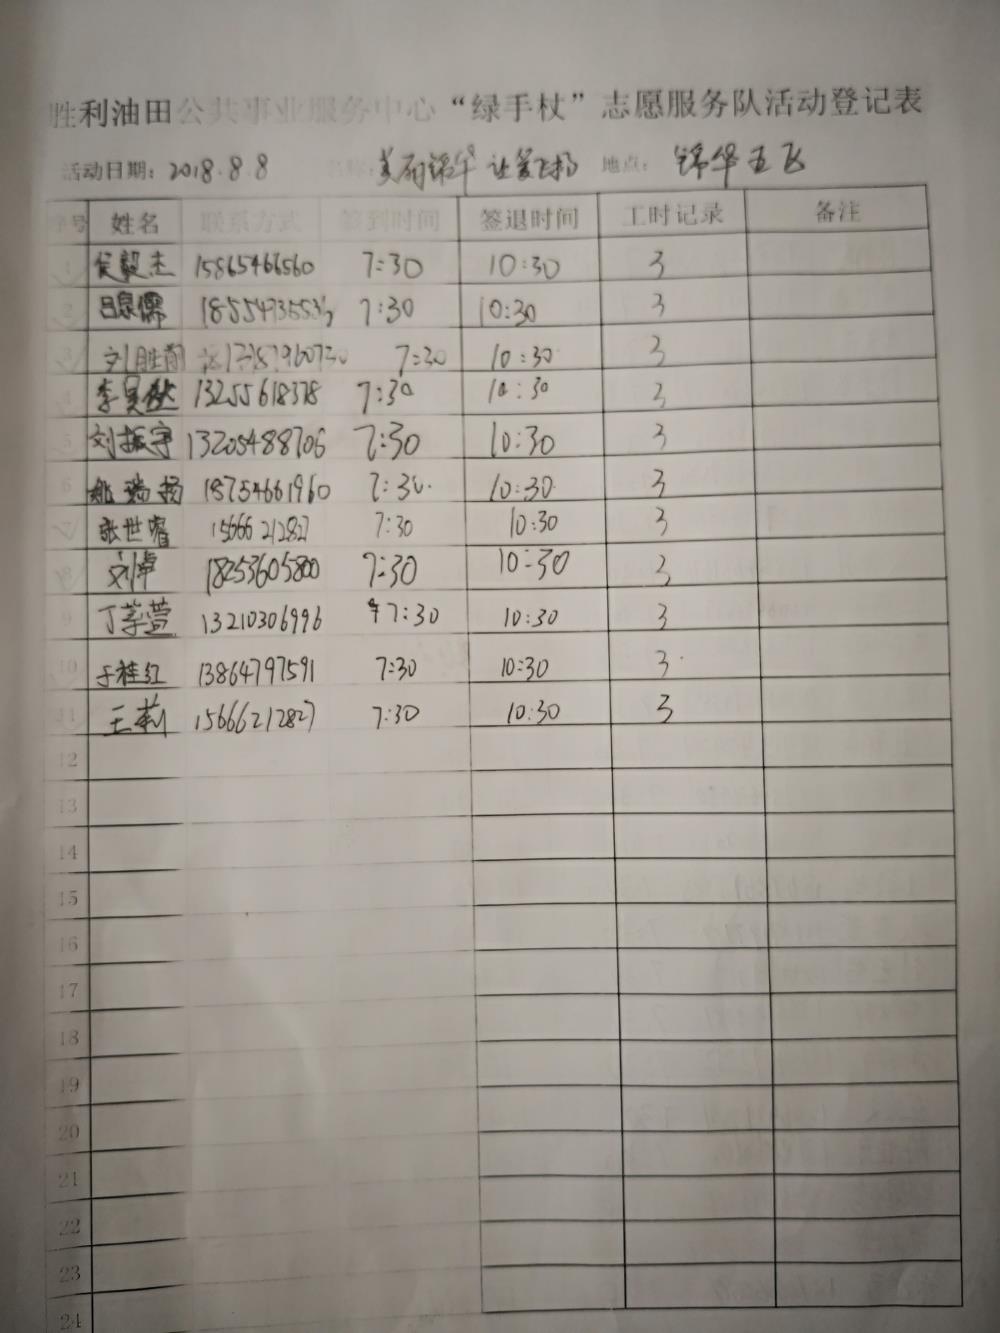 胜利油田公共事业服务中心“绿手杖”志愿服务队活动登记表
活动日期：2018.8.8 名称：美丽锦华 让爱飞扬 地点：锦华五飞
序号 姓名 联系方式 签到时间 签退时间 工时记录 备注
1 侯毅杰 15865466560 7:30 10:30 3
2 吕泉儒 7:30 10:30 3
3 刘胜前 7:30 10:30 3
4 李昊继 13255618378 7:30 10:30 3
5 刘振宇 13205488706 7:30 10:30 3
6 姚瑞扬 18754661960 7:30 10:30 3
7 张世睿 15666212827 7:30 10:30 3
8 刘卓 18253605800 7:30 10:30 3
9 丁莘萱 13210306996 7:30 10:30 3
10 于桂红 13864797591 7:30 10:30 3
11 王莉 15666212827 7:30 10:30 3
12
13
14
15
16
17
18
19
20
21
22
23
24